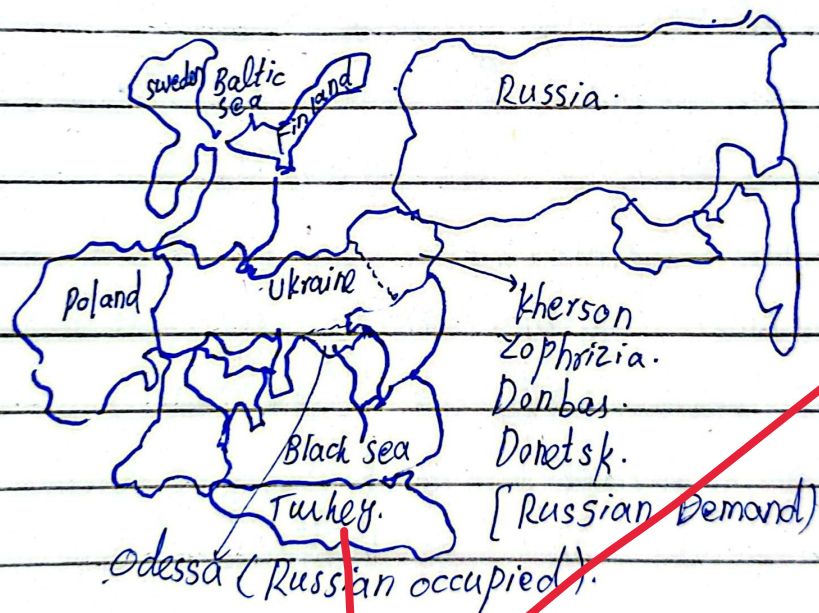 Sweden
Baltic
sea
Finland
Russia.
Poland
Ukraine
Kherson
Zophrizia.
Donbas.
Donetsk.
[Russian Demand)
Black sea
Turkey.
Odessa (Russian occupied).